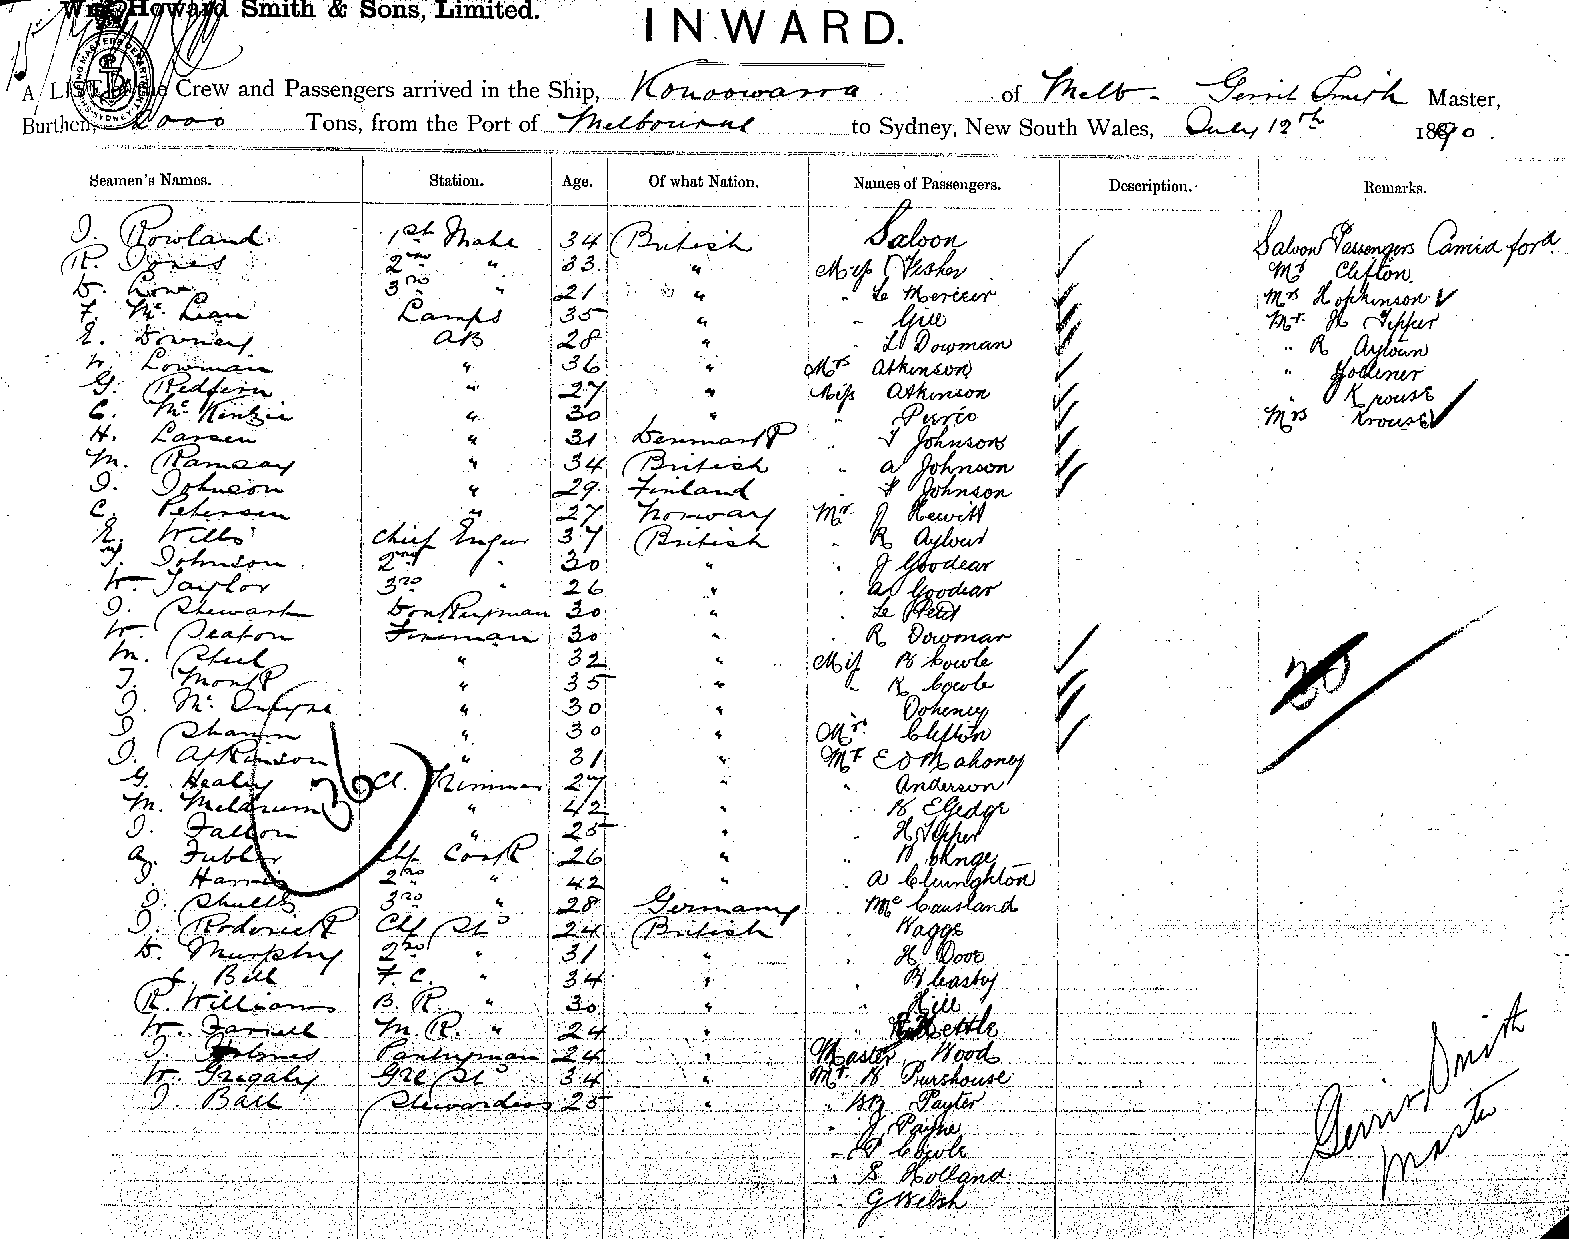 Wm. Howard Smith & Sons, Limited.
INWARD.
A LIST of the Crew and Passengers arrived in the Ship, Konoowarra of Melb. Gerrit Smith Master,
Burthen, 2000 Tons, from the Port of Melbourne to Sydney, New South Wales, July 12th 1890.
Seamen's Names. Station. Age. Of what Nation. Names of Passengers. Description. Remarks.
J. Rowland 1st Mate 34 British Saloon Saloon Passengers Carried ford
R. Jones 2nd " 33 " Miss Fisher Mr Clifton
D. Low 3rd " 21 " " Le Mercier Mrs Hopkinson
F. McLean Lamps 35 " " Gill Mr. H Tipper
E. Downey AB 28 " " L Dowman " R Aylwin
W. Lowman " 36 " Mrs Atkinson "
G. Redfern " 27 " Miss Atkinson " Krouse
C. McKinzie " 30 " " Mrs Krouse
H. Larsen " 31 Denmark " Johnson
M. Ramsay " 34 British " A Johnson
J. Johnson " 29 Finland " Johnson
C. Petersen " 27 Norway Mr. J Hewitt
E. Wills Chief Engnr 37 British " R
J. Johnson 2nd " 30 " " J Goodear
W. Taylor 3rd " 26 " " A Goodear
J. Stewart Donkeyman 30 " " Le
W. Seaton Fireman 30 " " R Dowman
M. " 32 " Miss B Cowle
J. Monk " 35 " " K Cowle
J. Mc " 30 " " Doheney
J. Shannon " 30 " Mrs. Clifton
J. Atkinson " 31 " Mr E O Mahoney
G. Healey Cl. Trimmer 27 " " Anderson
M. Meldrum " 42 " "
J. Fallon " 25 " " H Tipper
A. Chf Cook 26 " "
J. Harris 2nd " 42 " " A
J. Shults 3rd " 28 Germany " McCausland
J. Roderick Chf Std 24 British " Waggs
D. Murphy 2nd " 31 " " H Dove
J. Bell F. C. " 34 " "
R. Williams B. R. " 30 " " Hill
W. Farrell M. R. " 24 " " Kettle
J. Holmes Pantryman 24 " Master Wood
W. Gregaly Gnl Std 34 " Mr. B Purshouse
J. Ball Stewardess 25 " " Payter
" J Payne
" Cowle
" S Holland
" G Welsh
36
20
Gerrit Smith
Master